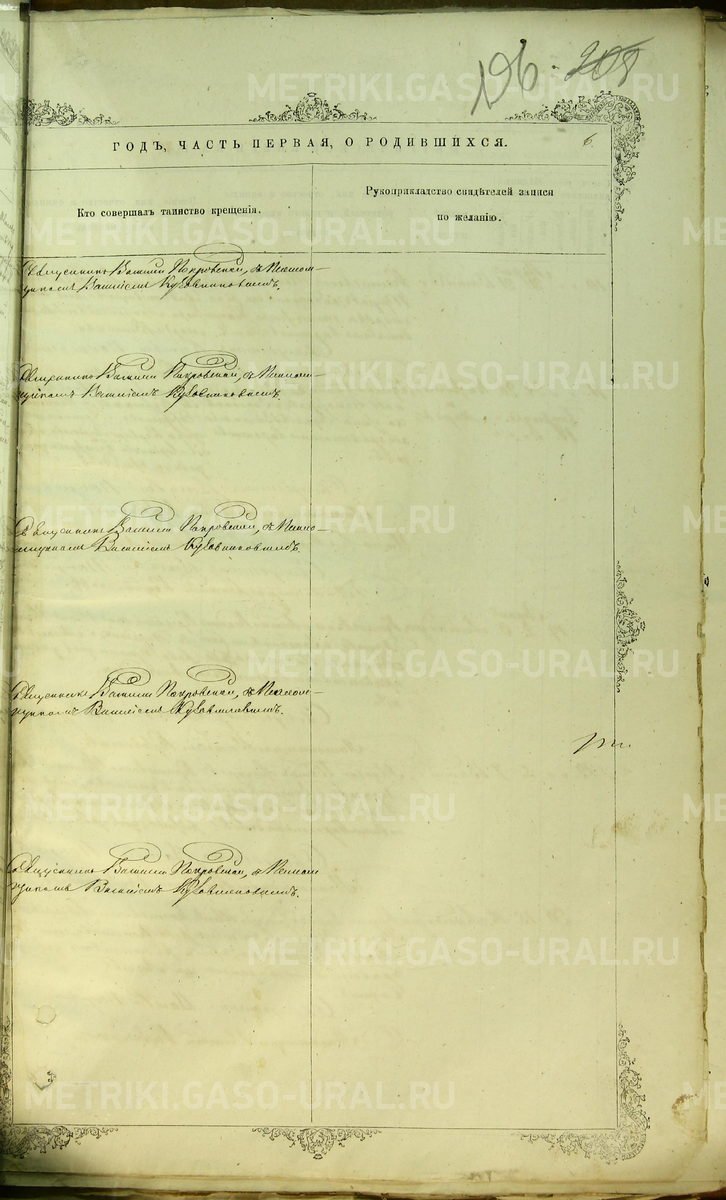 196. 208
ГОДЪ, ЧАСТЬ ПЕРВАЯ, О РОДИВШИХСЯ.
6.
Кто совершалъ таинство крещенія.
Рукоприкладство свидѣтелей записи
по желанію.
Священникъ Василій Покровскій, съ Псаломщикомъ
Василіемъ
Священникъ Василій Покровскій, съ Псаломщикомъ
Василіемъ
Священникъ Василій Покровскій, съ Псаломщикомъ
Василіемъ
Священникъ Василій Покровскій, съ Псаломщикомъ
Василіемъ
Священникъ Василій Покровскій, съ Псаломщикомъ
Василіемъ
METRIKI.GASO-URAL.RU